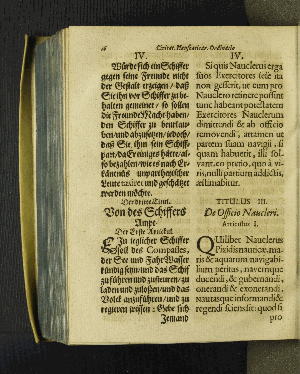 16 Civitat. Hanseaticar. Ordinatio
IV.
Würde sich ein Schiffer
gegen seine Freunde nicht
der Gestalt erzeigen / daß
Sie ihn vor Schiffer zu be-
halten gemeinet / so sollen
die Freunde Macht haben /
den Schiffer zu beurlau-
ben / und abzusetzen / jedoch /
daß Sie ihm sein Schiff-
part / da Er einiges hätte / al-
so bezahlen / wie es nach Er-
käntnis unpartheyischer
Leute taxiret und geschätzet
werden möchte.
Der dritte Titul.
Von des Schiffers
Ampt.
Der Erste Articul.
Ein jeglicher Schiffer
soll des Compasses,
der See und Fahr Wasser
kündig seyn / und das Schiff
zu führen und zu steuren / zu
laden und zu lossen / und das
Volck anzuführen / und zu
regieren wissen: Gebe sich
Jemand
IV.
Si quis Nauclerus erga
suos Exercitores sese ita
non gesserit, ut eum pro
Nauclero retinere possint
tunc habeant potestatem
Exercitores Nauclerum
dimittendi & ab officio
removendi, attamen ut
partem suam navigii, si
quam habuerit, illi sol-
vant, eo pretio, quo à vi-
ris, nulli partium addictis,
æstimabitur.
TITULUS III.
De Officio Naucleri.
Articulus I.
Quilibet Nauclerus
Pixidis nauticæ, ma-
ris & aquarum navigabi-
lium peritus, navemque
ducendi, & gubernandi,
onerandi & exonerandi,
nautasque informandi &
regendi sciens sit: quod si
pro